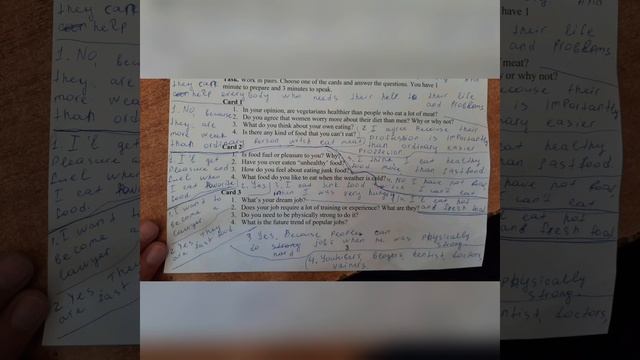 they can help everybody who needs their help to their life and problems
Task. Work in pairs. Choose one of the cards and answer the questions. You have 1
minute to prepare and 3 minutes to speak.
Card 1
1. In your opinion, are vegetarians healthier than people who eat a lot of meat?
2. Do you agree that women worry more about their diet than men? Why or why not?
3. What do you think about your own eating?
4. Is there any kind of food that you can't eat?
1. No, because
they are
more weak
than ordinary person witch eat meat
2 I agree because their
profession is importantly
than ordinary easier
Card 2
1. Is food fuel or pleasure to you? Why?
2. Have you ever eaten 'unhealthy' food?
3. How do you feel about eating junk food?
4. What food do you like to eat when the weather is cold?
1 I'l get
Pleasure and
fuel when
I eat favorite
food.
2. Yes
3. I eat junk food
when I was very hungry
3 I think I eat healthy
food more than fastfood
4. No I have not food
witch I can't eat
4. I'l eat hot
and fresh food
Card 3
1. What's your dream job?
2. Does your job require a lot of training or experience? What are they?
3. Do you need to be physically strong to do it?
4. What is the future trend of popular jobs?
1. I want to
become a
lawyer
2 Yes, They
are fast
3 Yes, Because people can
do strong jobs when he was physically
hard strong
4. Youtubers, blogers, dentist, doctors,